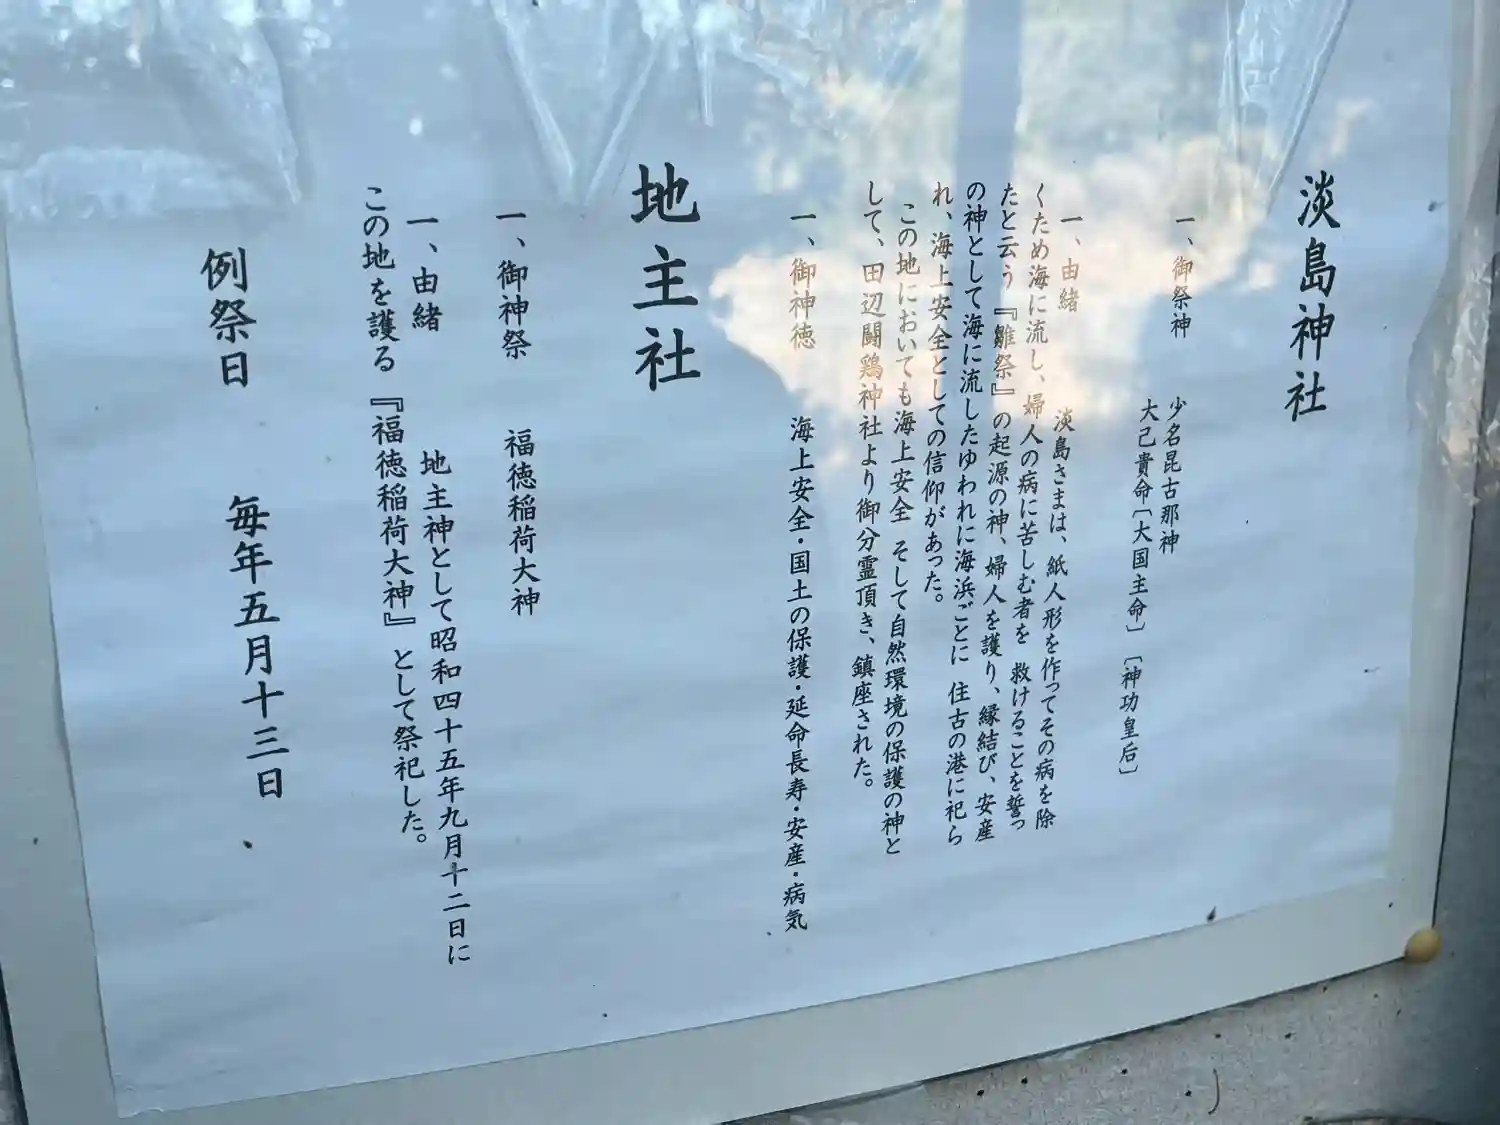 淡島神社
一、御祭神
少名昆古那神
大己貴命〔大国主命〕〔神功皇后〕
一、由緒 淡島さまは、紙人形を作ってその病を除
くため海に流し、婦人の病に苦しむ者を 救けることを誓っ
たと云う『雛祭』の起源の神、婦人を護り、縁結び、安産
の神として海に流したゆわれに海浜ごとに 住古の港に祀ら
れ、海上安全としての信仰があった。
この地においても海上安全 そして自然環境の保護の神と
して、田辺闘鶏神社より御分霊頂き、鎮座された。
一、御神徳 海上安全・国土の保護・延命長寿・安産・病気
地主社
一、御神祭 福徳稲荷大神
一、由緒 地主神として昭和四十五年九月十二日に
この地を護る『福徳稲荷大神』として祭祀した。
例祭日 毎年五月十三日